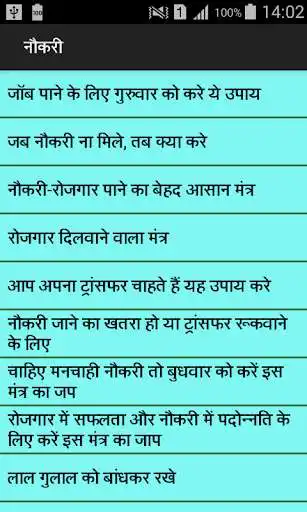 1 100% 14:02
नौकरी
जॉब पाने के लिए गुरुवार को करे ये उपाय
जब नौकरी ना मिले, तब क्या करे
नौकरी-रोजगार पाने का बेहद आसान मंत्र
रोजगार दिलवाने वाला मंत्र
आप अपना ट्रांसफर चाहते हैं यह उपाय करे
नौकरी जाने का खतरा हो या ट्रांसफर रूकवाने
के लिए
चाहिए मनचाही नौकरी तो बुधवार को करें इस
मंत्र का जप
रोजगार में सफलता और नौकरी में पदोन्नति के
लिए करें इस मंत्र का जाप
लाल गुलाल को बांधकर रखे